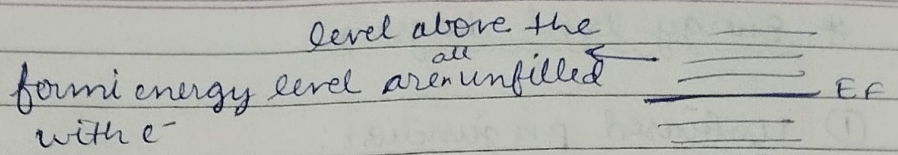 level above the
all
formi energy level are unfilled
with e⁻
EF